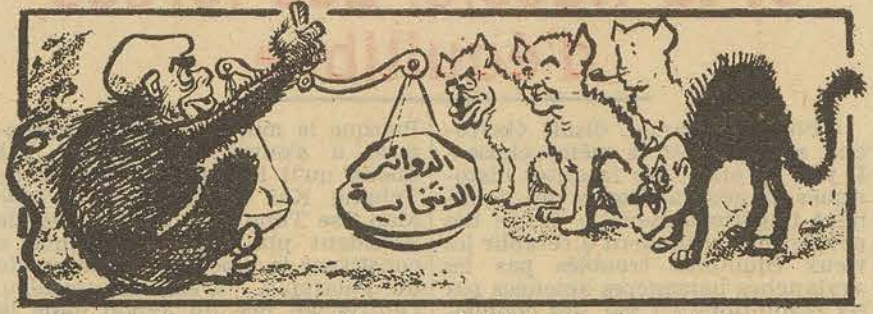 الدوائر
الانتخابية